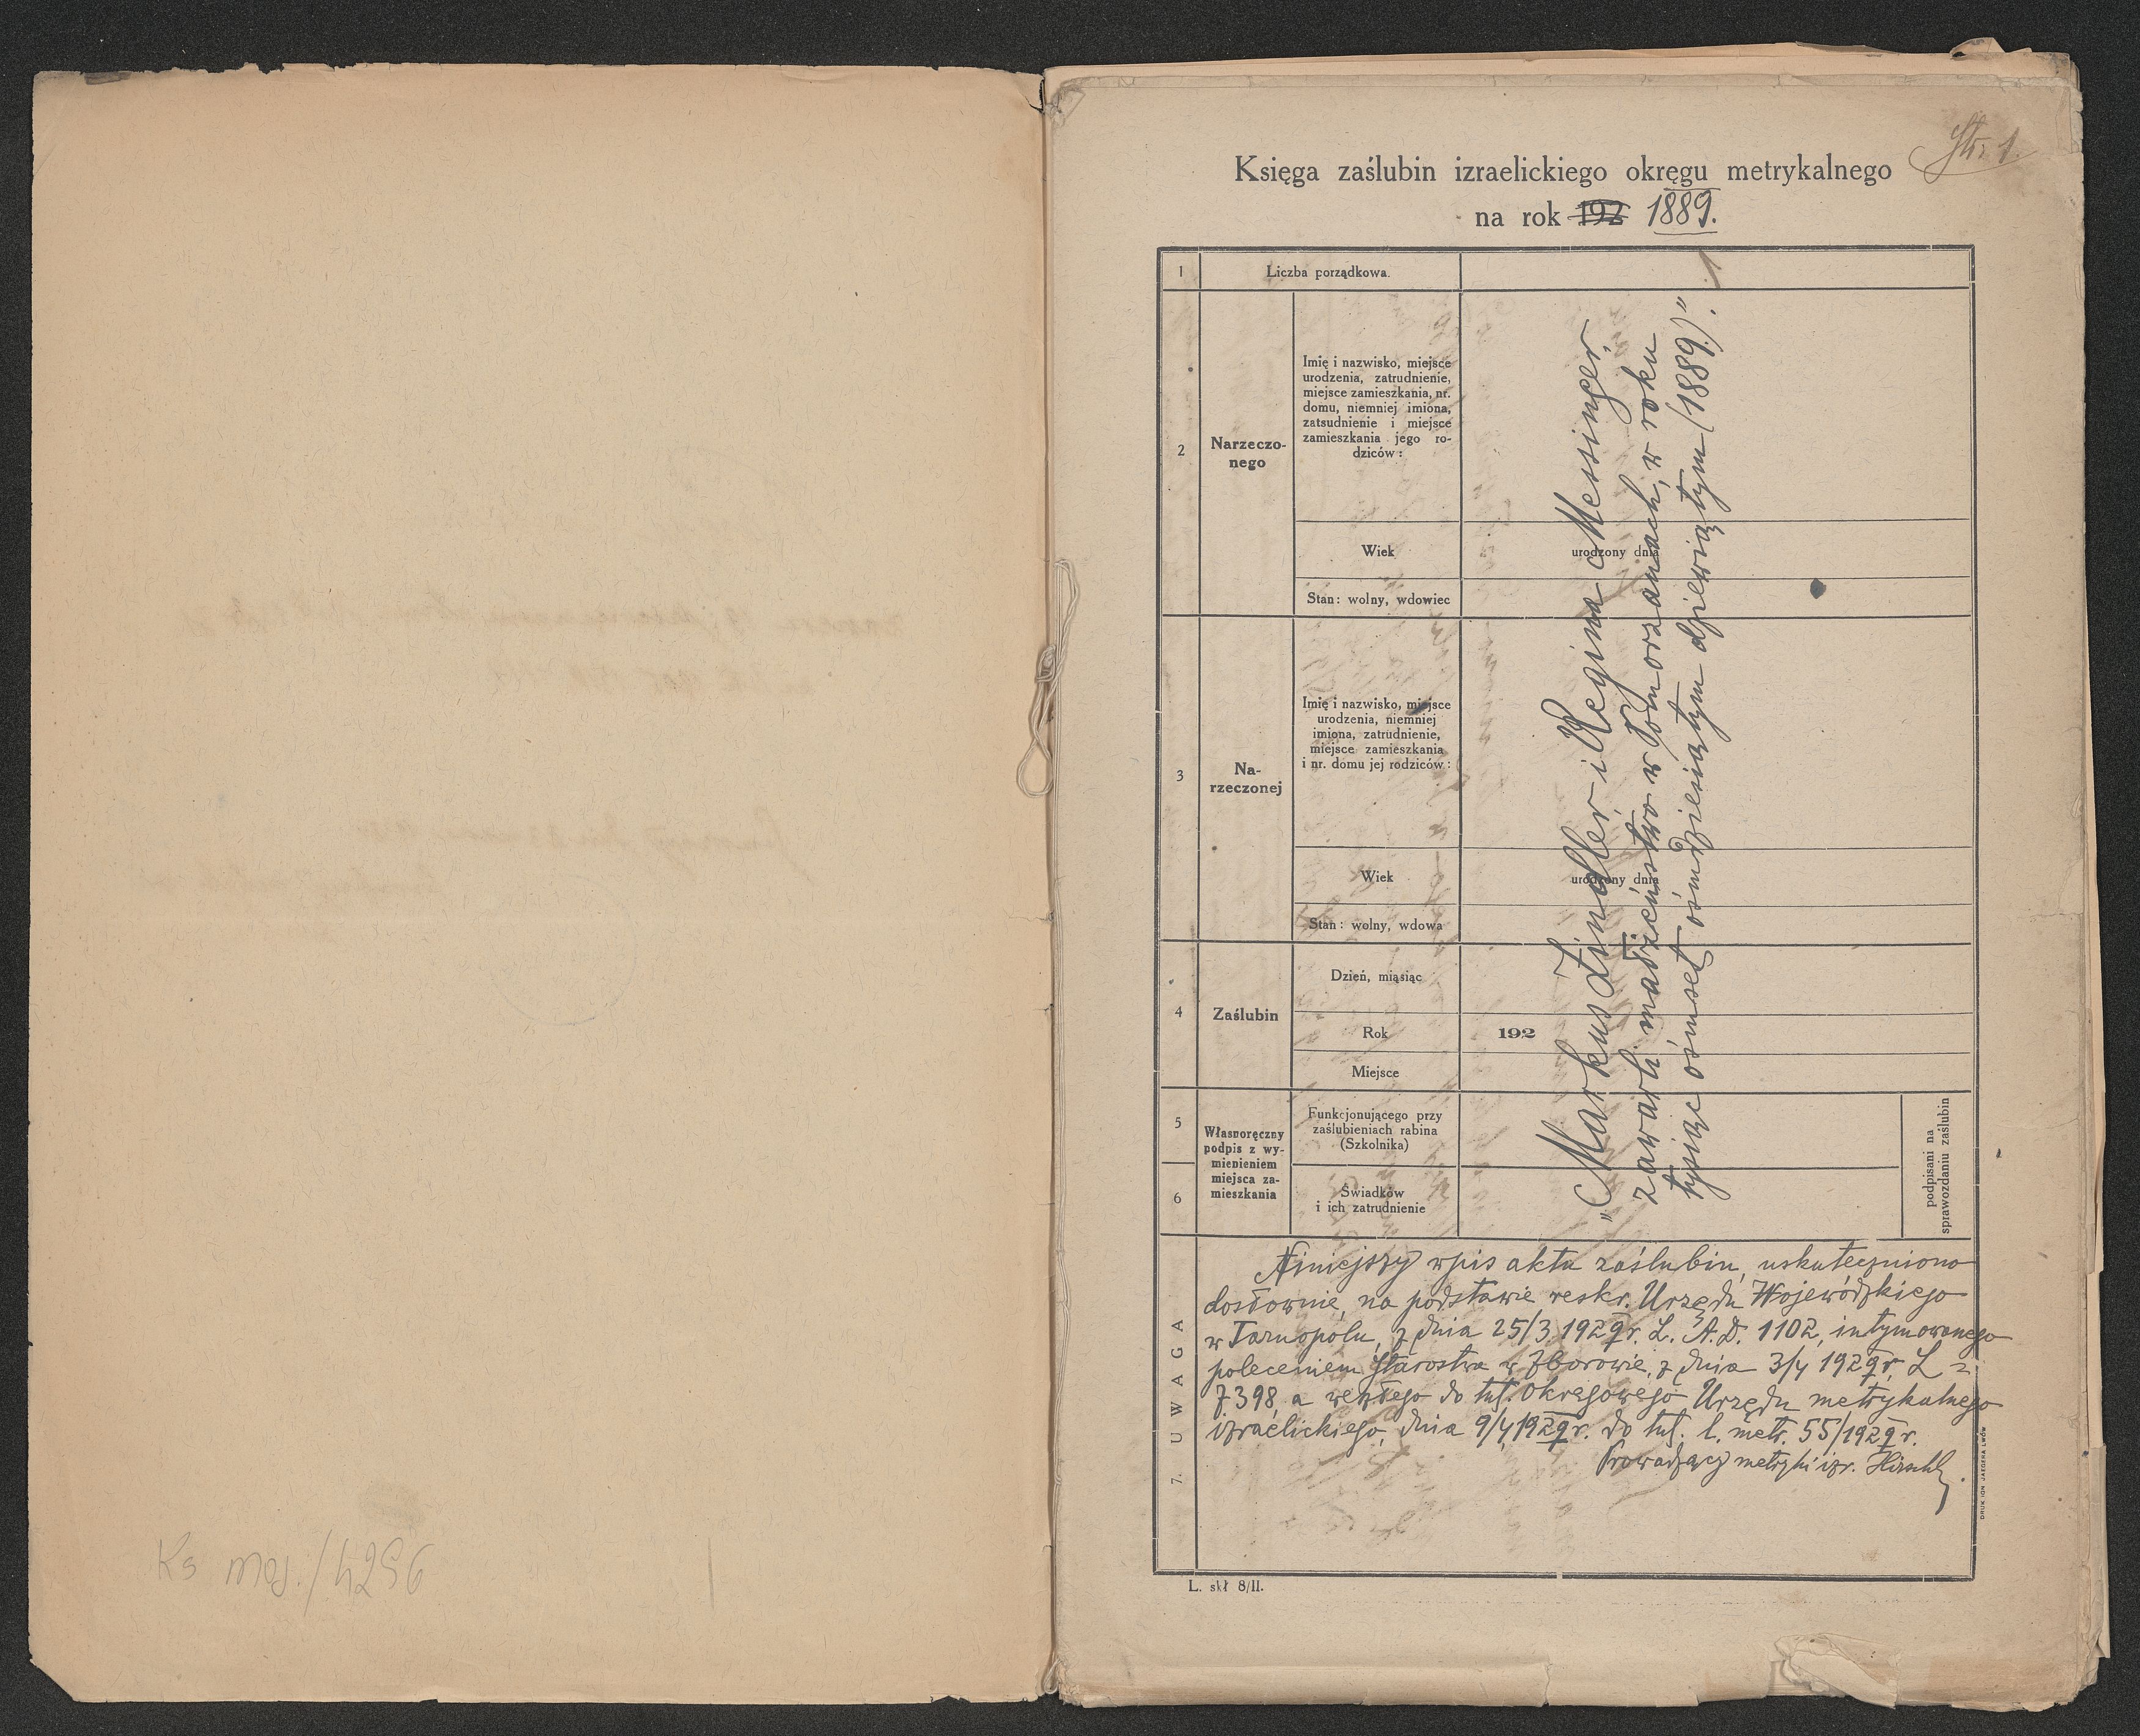 Str. 1.
Księga zaślubin izraelickiego okręgu metrykalnego
na rok 192 1889.
1 Liczba porządkowa. 1
2 Narzeczo-
nego
Imię i nazwisko, miejsce
urodzenia, zatrudnienie,
miejsce zamieszkania, nr.
domu, niemniej imiona,
zatsudnienie i miejsce
zamieszkania jego ro-
dziców :
Wiek urodzony dnia
Stan : wolny, wdowiec
3 Na-
rzeczonej
Imię i nazwisko, miejsce
urodzenia, niemniej
imiona, zatrudnienie,
miejsce zamieszkania
i nr. domu jej rodziców :
Wiek urodzony dnia
Stan : wolny, wdowa
4 Zaślubin
Dzień, miąsiąc
Rok 192
Miejsce
5
6
Własnoręczny
podpis z wy-
mienieniem
miejsca za-
mieszkania
Funkcjonującego przy
zaślubieniach rabina
(Szkolnika)
Świadków
i ich zatrudnienie
podpisani na
sprawozdaniu zaślubin
„Markus Zindler i Regina Messinger
zawarli małżeństwo w Pomorzanach, w roku
tysiąc ośmset ośmdziesiątym dziewiątym (1889)."
7. UWAGA
Niniejszy wpis aktu zaślubin, uskuteczniono
dosłownie, na podstawie reskr. Urzędu Wojewódzkiego
w Tarnopolu, z dnia 25/3 1929r. L. A.D. 1102, intymowanego
poleceniem Starostwa w Zborowie, z dnia 3/4 1929r. L =
7398, a weszłego do tut. Okręgowego Urzędu metrykalnego
izraelickiego, dnia 9/4 1929r. do tut. l. metr. 55/1929r.
Prowadzący metryki izr. Hirschl
DRUK IGN JAEGERA LWÓW
L. skł 8/II.